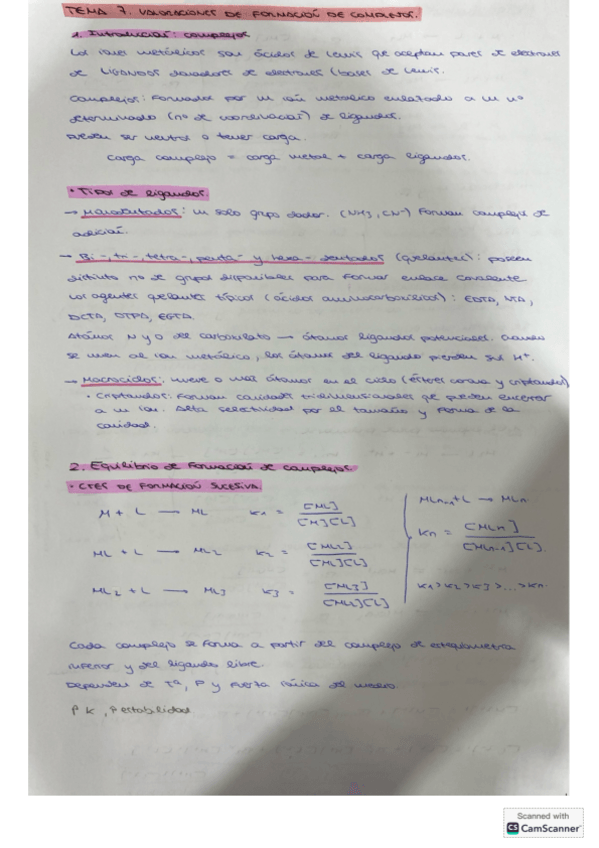 TEMA 7. VALORACIONES DE FORMACIÓN DE COMPLEJOS.
1. Introducción: complejos
Los iones metálicos son ácidos de Lewis que aceptan pares de electrones
de LIGANDOS donadores de electrones (bases de Lewis.
Complejos: Formados por un ión metálico enlazado a un nº
determinado (nº de coordinación) de ligandos.
Pueden ser neutros o tener carga.
Carga complejo = carga metal + carga ligandos.
• Tipos de ligandos
→ Monodentados: un solo grupo dador. (NH3, CN-) Forman complejos de
adición.
→ Bi-, tri-, tetra-, penta- y hexa-dentados (quelantes): poseen
distinto nº de grupos disponibles para formar enlace covalente
Los agentes quelantes típicos (ácidos aminocarboxílicos): EDTA, NTA,
DCTA, DTPA, EGTA.
Átomos N y O del carboxilato → átomos ligandos potenciales. Cuando
se unen al ion metálico, los átomos del ligando pierden sus H+.
→ Macrociclos: nueve o más átomos en el ciclo (éteres corona y criptandos)
• Criptandos: Forman cavidades tridimensionales que pueden encerrar
a un ion. Alta selectividad por el tamaño y forma de la
cavidad.
2. Equilibrio de Formación de complejos.
• CTES DE FORMACIÓN SUCESIVA
M + L → ML K1 = [ML] / [M][L]
ML + L → ML2 K2 = [ML2] / [ML][L]
ML2 + L → ML3 K3 = [ML3] / [ML2][L]
MLn-1 + L → MLn
Kn = [MLn] / [MLn-1][L].
K1 > K2 > K3 > ... > Kn.
Cada complejo se forma a partir del complejo de estequiometría
inferior y del ligando libre.
Dependen de Tª, P y fuerza iónica del medio.
↑ K, ↑ estabilidad
Scanned with
CS CamScanner